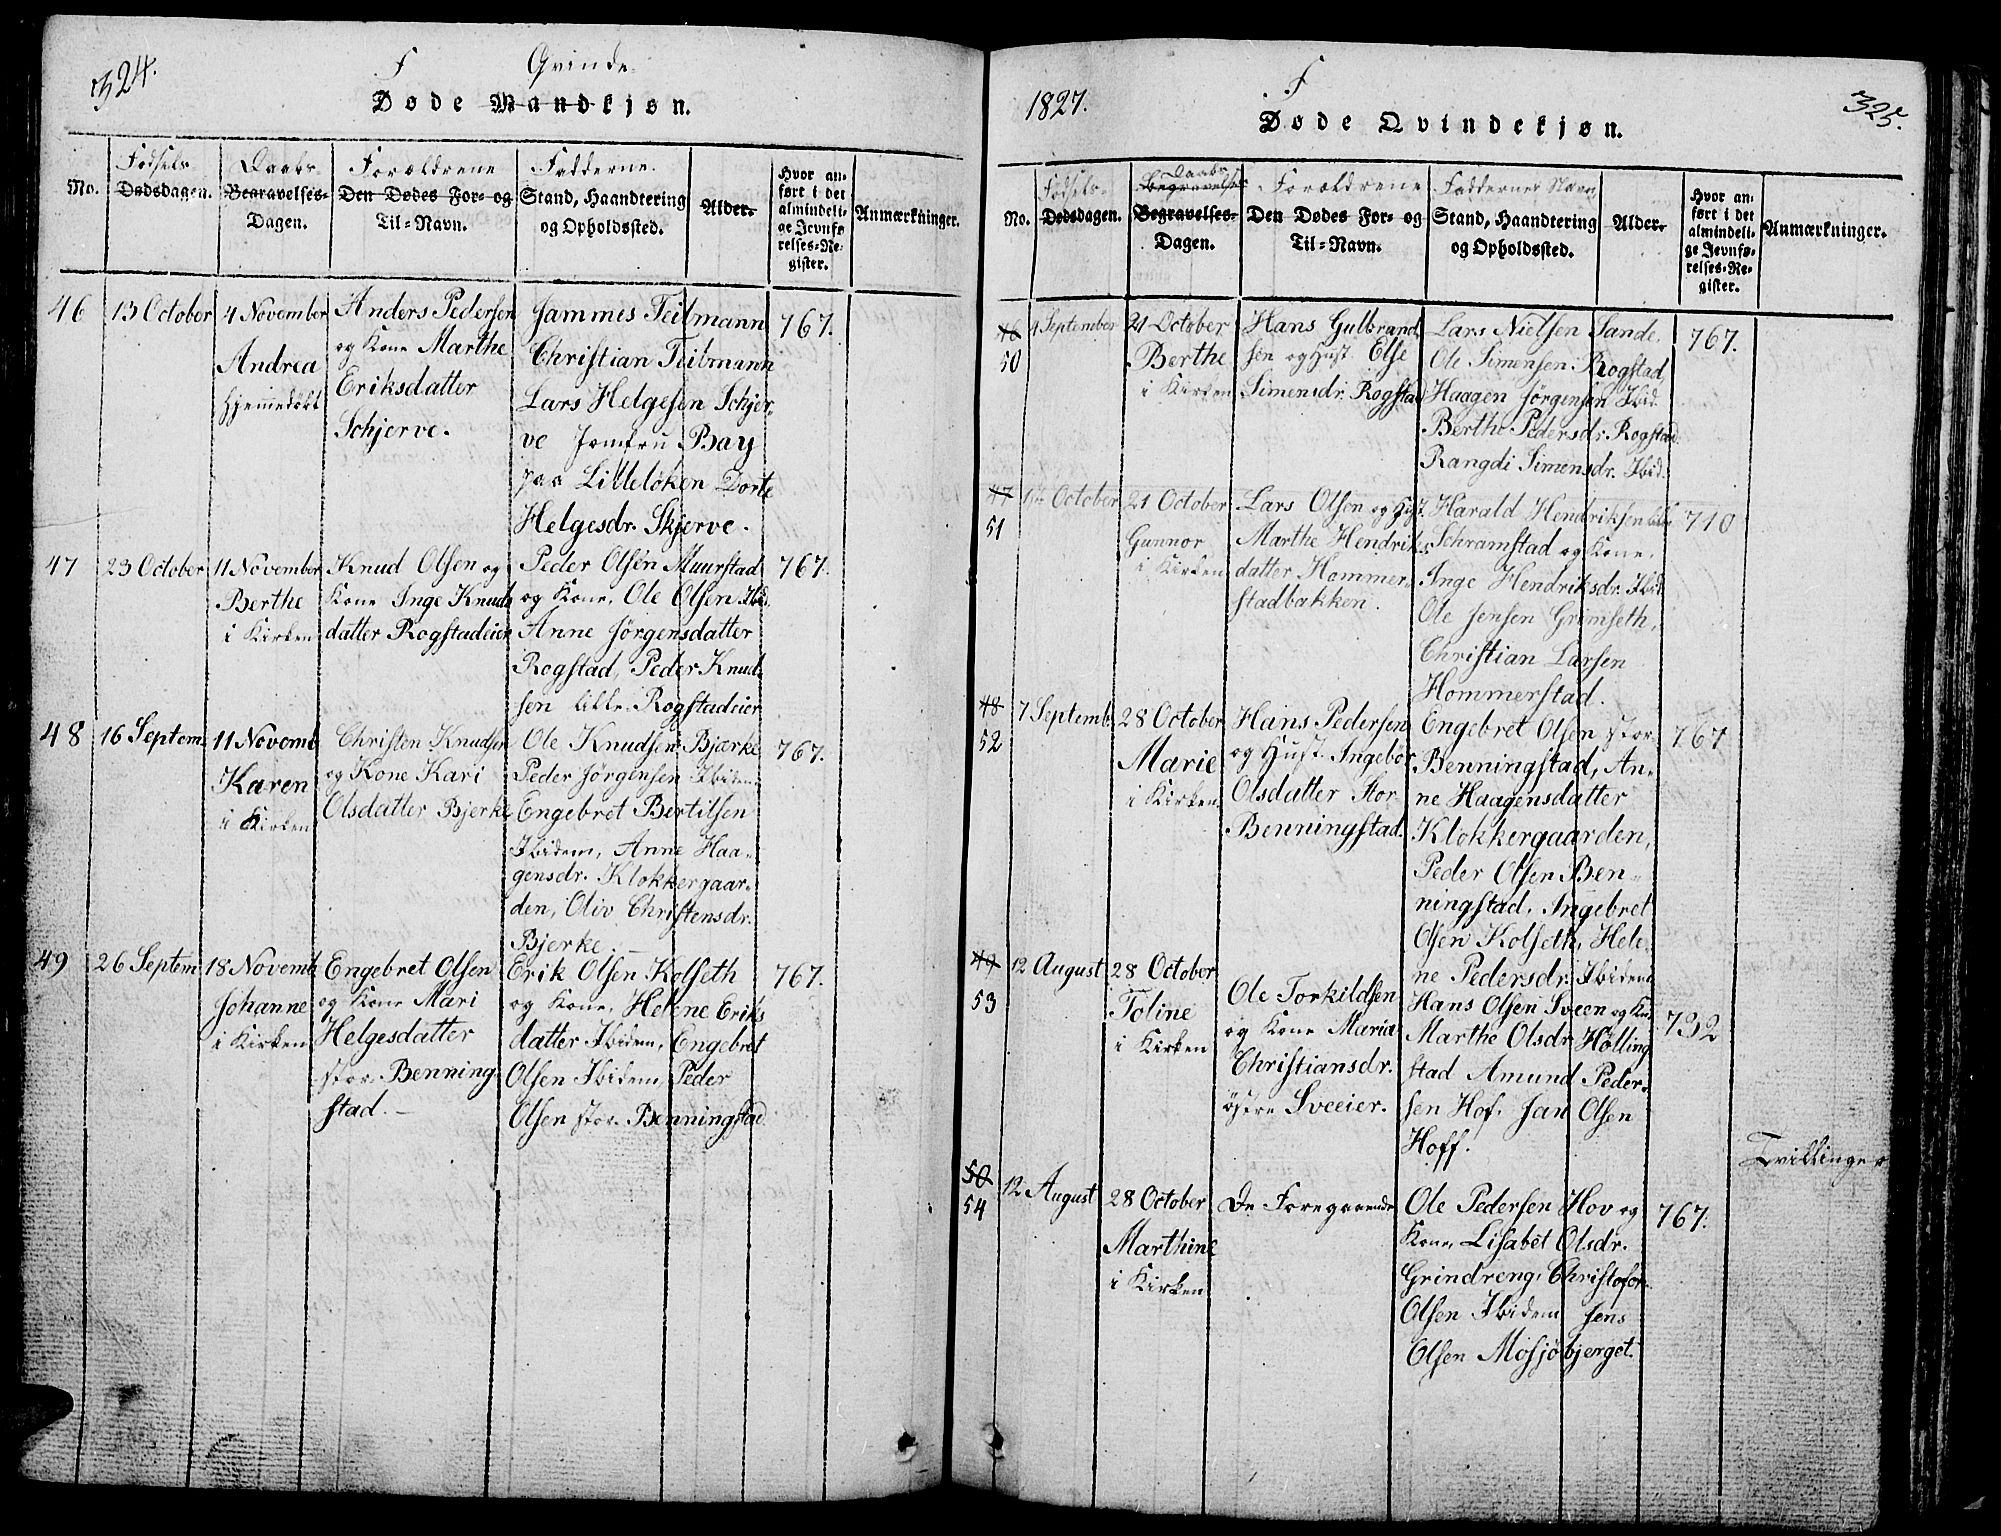 324.
F Qvinde
Døde Mandkjøn.
No.
Fødsels
Dødsdagen.
Daabs
Begravelses-
Dagen.
Forældrene
Den Dødes For- og
Til-Navn.
Fadderne.
Stand, Haandtering
og Opholdssted.
Alder.
Hvor an-
ført i det
almindeli-
ge Jevnfø-
relses-Re-
gister.
Anmærkninger.
46
13 October
4 November
Andrea
hjemedøbt
Anders Pedersen
og Kone Marthe
Eriksdatter
Schjerve.
Jammes Teitmann
Christian Teitmann
Lars Helgesen Schjer-
ve Jomfru Bay
paa Lilleløken Dorte
Helgesdr. Skjerve.
767.
47
23 October
11 November
Berthe
i Kirken
Knud Olsen og
Kone Inge Knuds
datter Rogstadeier
Peder Olsen Muurstad
og Kone, Ole Olsen Ibid.
Anne Jørgensdatter
Rogstad, Peder Knud-
sen lille Rogstadeier
767.
48
16 Septem
11 Novemb
Karen
i Kirken
Christen Knudsen
og Kone Kari
Olsdatter Bjerke
Ole Knudsen Bjærke
Peder Jørgensen Ibidem
Engebret Bertilsen
Ibidem, Anne Haa-
gensdr. Klokkergaar-
den, Oliv Christensdr.
Bjerke.
767.
49
26 Septem
18 Novemb
Johanne
i Kirken
Engebret Olsen
og Kone Mari
Helgesdatter
stor Benning
stad.
Erik Olsen Kolseth
og Kone, Helene Eriks
datter Ibidem, Engebret
Olsen Ibidem, Peder
Olsen stor Benningstad
767.
1827.
F
Døde Qvindekjøn.
325.
No.
Fødsels-
Dødsdagen.
Daabs
Begravelses
Begravelses-
Dagen.
Forældrene
Den Dødes For- og
Til-Navn.
Faddernes Navn
Stand, Haandtering
og Opholdssted.
Alder.
Hvor an-
ført i det
almindeli-
ge Jevnfø-
relses-Re-
gister.
Anmærkninger.
46
50
9 September
21 October
Berthe
i Kirken
Hans Gulbrand-
sen og Hust. Else
Simensdr. Rogstad
Lars Nielsen Sande,
Ole Simensen Rogstad,
Haagen Jørgensen Ibid.
Berthe Pedersdr. Rogstad
Rangdi Simensdr. Ibid.
767.
47
51
October
21 October
Gunnor
i Kirken
Lars Olsen og Hust.
Marthe Hendriks
datter Hommer-
stadbakken.
Harald Hendriksen
Schramstad og Kone,
Inge Hendriksdr. Ibid
Ole Jensen Grimseth,
Christian Larsen
Hommerstad.
710
48
52
7 Septemb
28 October
Marie
i Kirken
Hans Pedersen
og Hust. Ingebor
Olsdatter Stor
Benningstad.
Engebret Olsen stor
Benningstad, An-
ne Haagensdatter
Klokkergaarden,
Peder Olsen Ben-
ningstad, Ingebret
Olsen Kolseth, Hele-
ne Pedersdr. Ibidem
767
49
53
12 August
28 October
Toline
i Kirken
Ole Torkildsen
og Kone Maria
Christiansdr.
østre Sveeier.
Hans Olsen Sveen og Kone
Marthe Olsdr Hølling
stad Amund Peder-
sen Hof. Jan Olsen
Hoff.
732
Tvillinger
50
54
12 August
28 October
Marthine
i Kirken
De Foregaaende
Ole Pedersen Hov og
Kone, Lisabet Olsdr.
Grindreng, Christofer
Olsen Ibidem Jens
Olsen Mosjøbjerget.
767.